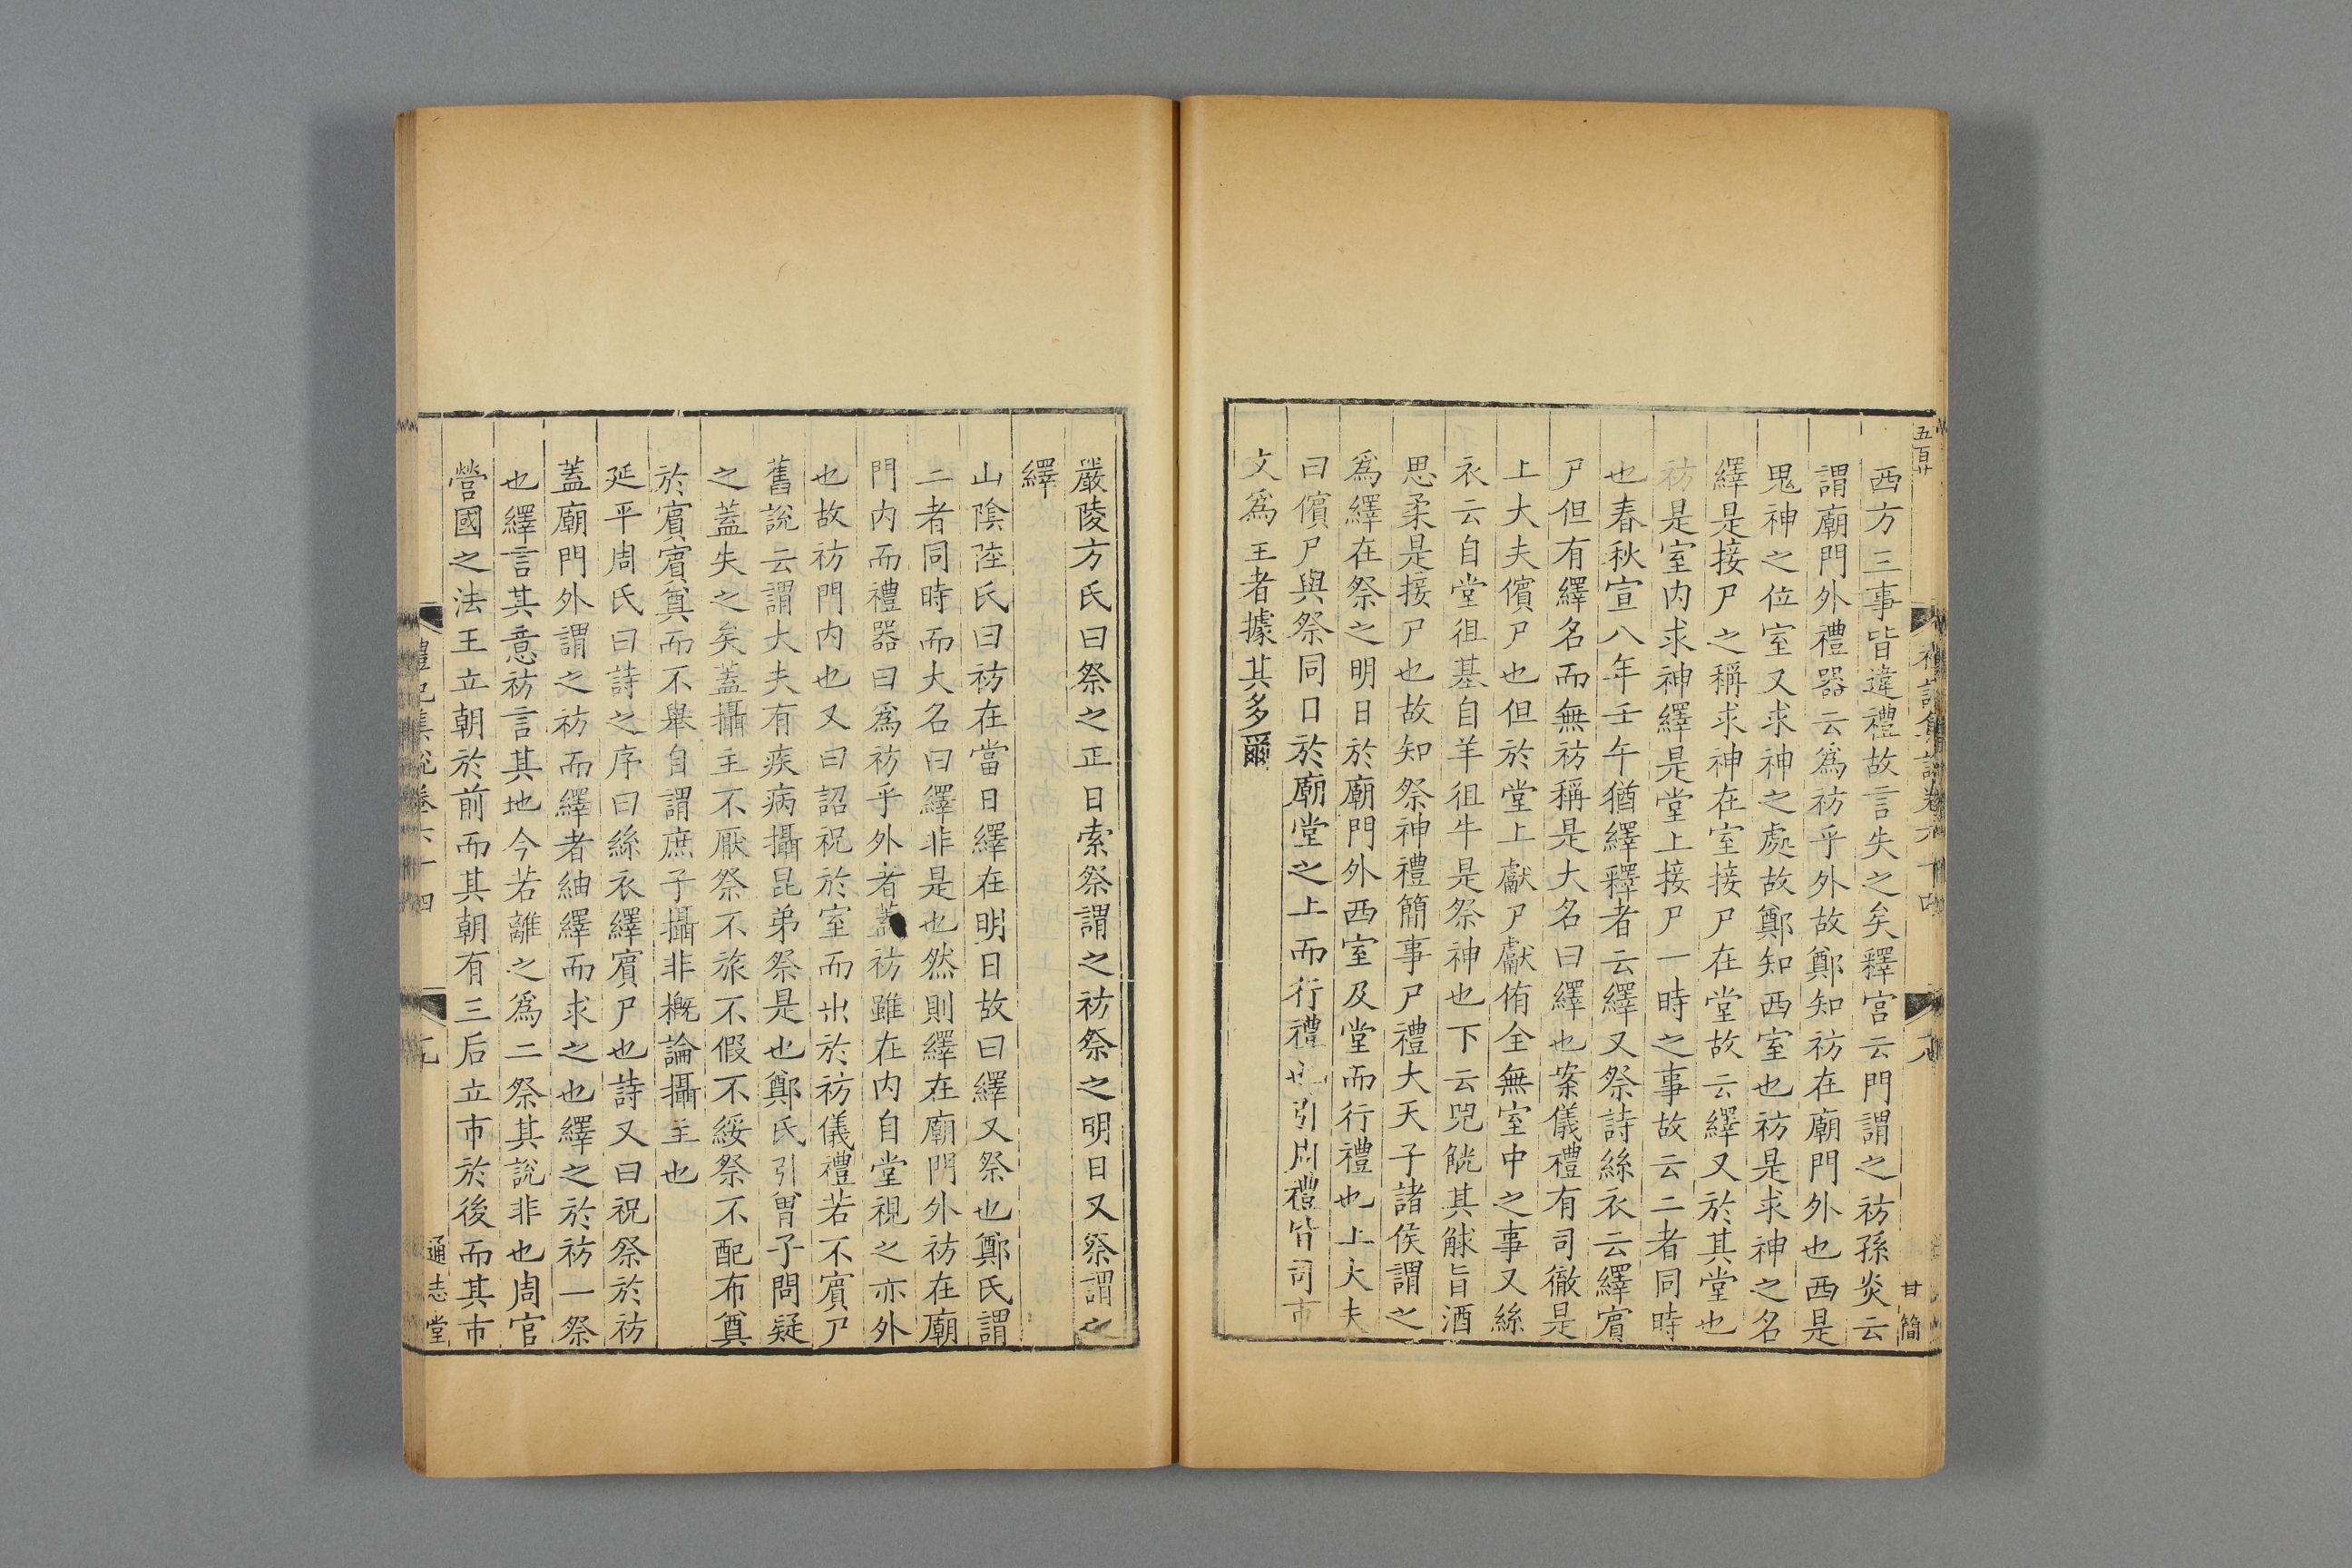 五百廿
西方三事皆違禮故言失之矣釋宫云門謂之祊孫炎云
謂廟門外禮器云爲祊乎外故鄭知祊在廟門外也西是
鬼神之位室又求神之處故鄭知西室也祊是求神之名
繹是接尸之稱求神在室接尸在堂故云繹又於其堂也
祊是室内求神繹是堂上接尸一時之事故云二者同時
也春秋宣八年壬午猶繹釋者云繹又祭詩絲衣云繹賓
尸但有繹名而無祊稱是大名曰繹也案儀禮有司徹是
上大夫儐尸也但於堂上獻尸獻侑全無室中之事又絲
衣云自堂徂基自羊徂牛是祭神也下云兕觥其觩旨酒
思柔是接尸也故知祭神禮簡事尸禮大天子諸侯謂之
爲繹在祭之明日於廟門外西室及堂而行禮也上大夫
曰儐尸與祭同日於廟堂之上而行禮也引周禮皆司市
文爲王者據其多爾
禮記集說卷六十四
八
甘簡
嚴陵方氏曰祭之正日索祭謂之祊祭之明日又祭謂之
繹
山陰陸氏曰祊在當日繹在明日故曰繹又祭也鄭氏謂
二者同時而大名曰繹非是也然則繹在廟門外祊在廟
門内而禮器曰爲祊乎外者蓋祊雖在内自堂視之亦外
也故祊門内也又曰詔祝於室而出於祊儀禮若不賓尸
舊說云謂大夫有疾病攝昆弟祭是也鄭氏引曾子問疑
之蓋失之矣蓋攝主不厭祭不旅不假不綏祭不配布奠
於賓賓奠而不舉自謂庶子攝非概論攝主也
延平周氏曰詩之序曰絲衣繹賓尸也詩又曰祝祭於祊
蓋廟門外謂之祊而繹者紬繹而求之也繹之於祊一祭
也繹言其意祊言其地今若離之爲二祭其說非也周官
營國之法王立朝於前而其朝有三后立市於後而其市
禮記集說卷六十四
通志堂